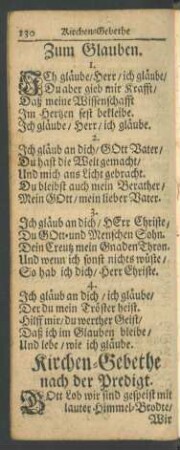 130 Kirchen-Gebethe
Zum Glauben.
1.
ICh gläube/Herr/ich gläube/
Du aber gieb mir Krafft/
Daß meine Wissenschafft
Im Hertzen fest bekleibe.
Ich gläube/Herr/ich gläube.
2.
Ich gläub an dich/GOtt Vater/
Du hast die Welt gemacht/
Und mich ans Licht gebracht.
Du bleibst auch mein Berather/
Mein GOtt/mein lieber Vater.
3.
Ich gläub an dich/HErr Christe/
Du GOtt und Menschen Sohn.
Dein Creutz mein Gnaden Thron.
Und wenn ich sonst nichts wüste/
So hab ich dich/Herr Christe.
4.
Ich gläub an dich/ich gläube/
Der du mein Tröster heist.
Hilff mir/du werther Geist/
Daß ich im Glauben bleibe/
Und lebe/wie ich gläube.
Kirchen-Gebethe
nach der Predigt.
GOtt Lob wir sind gespeist mit
lauter Himmel-Brodte/
Wir